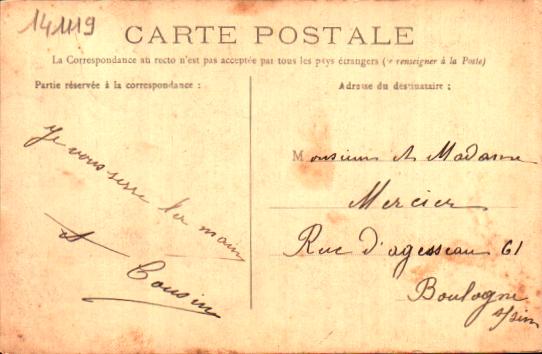 141119
CARTE POSTALE
La Correspondance au recto n'est pas acceptée par tous les pays étrangers (se renseigner à la Poste)
Partie réservée à la correspondance :
Adresse du destinataire :
Je vous serre la main
A Cousin
Monsieur et Madame
Mercier
Rue d'agesseau 61
Boulogne
s/Seine